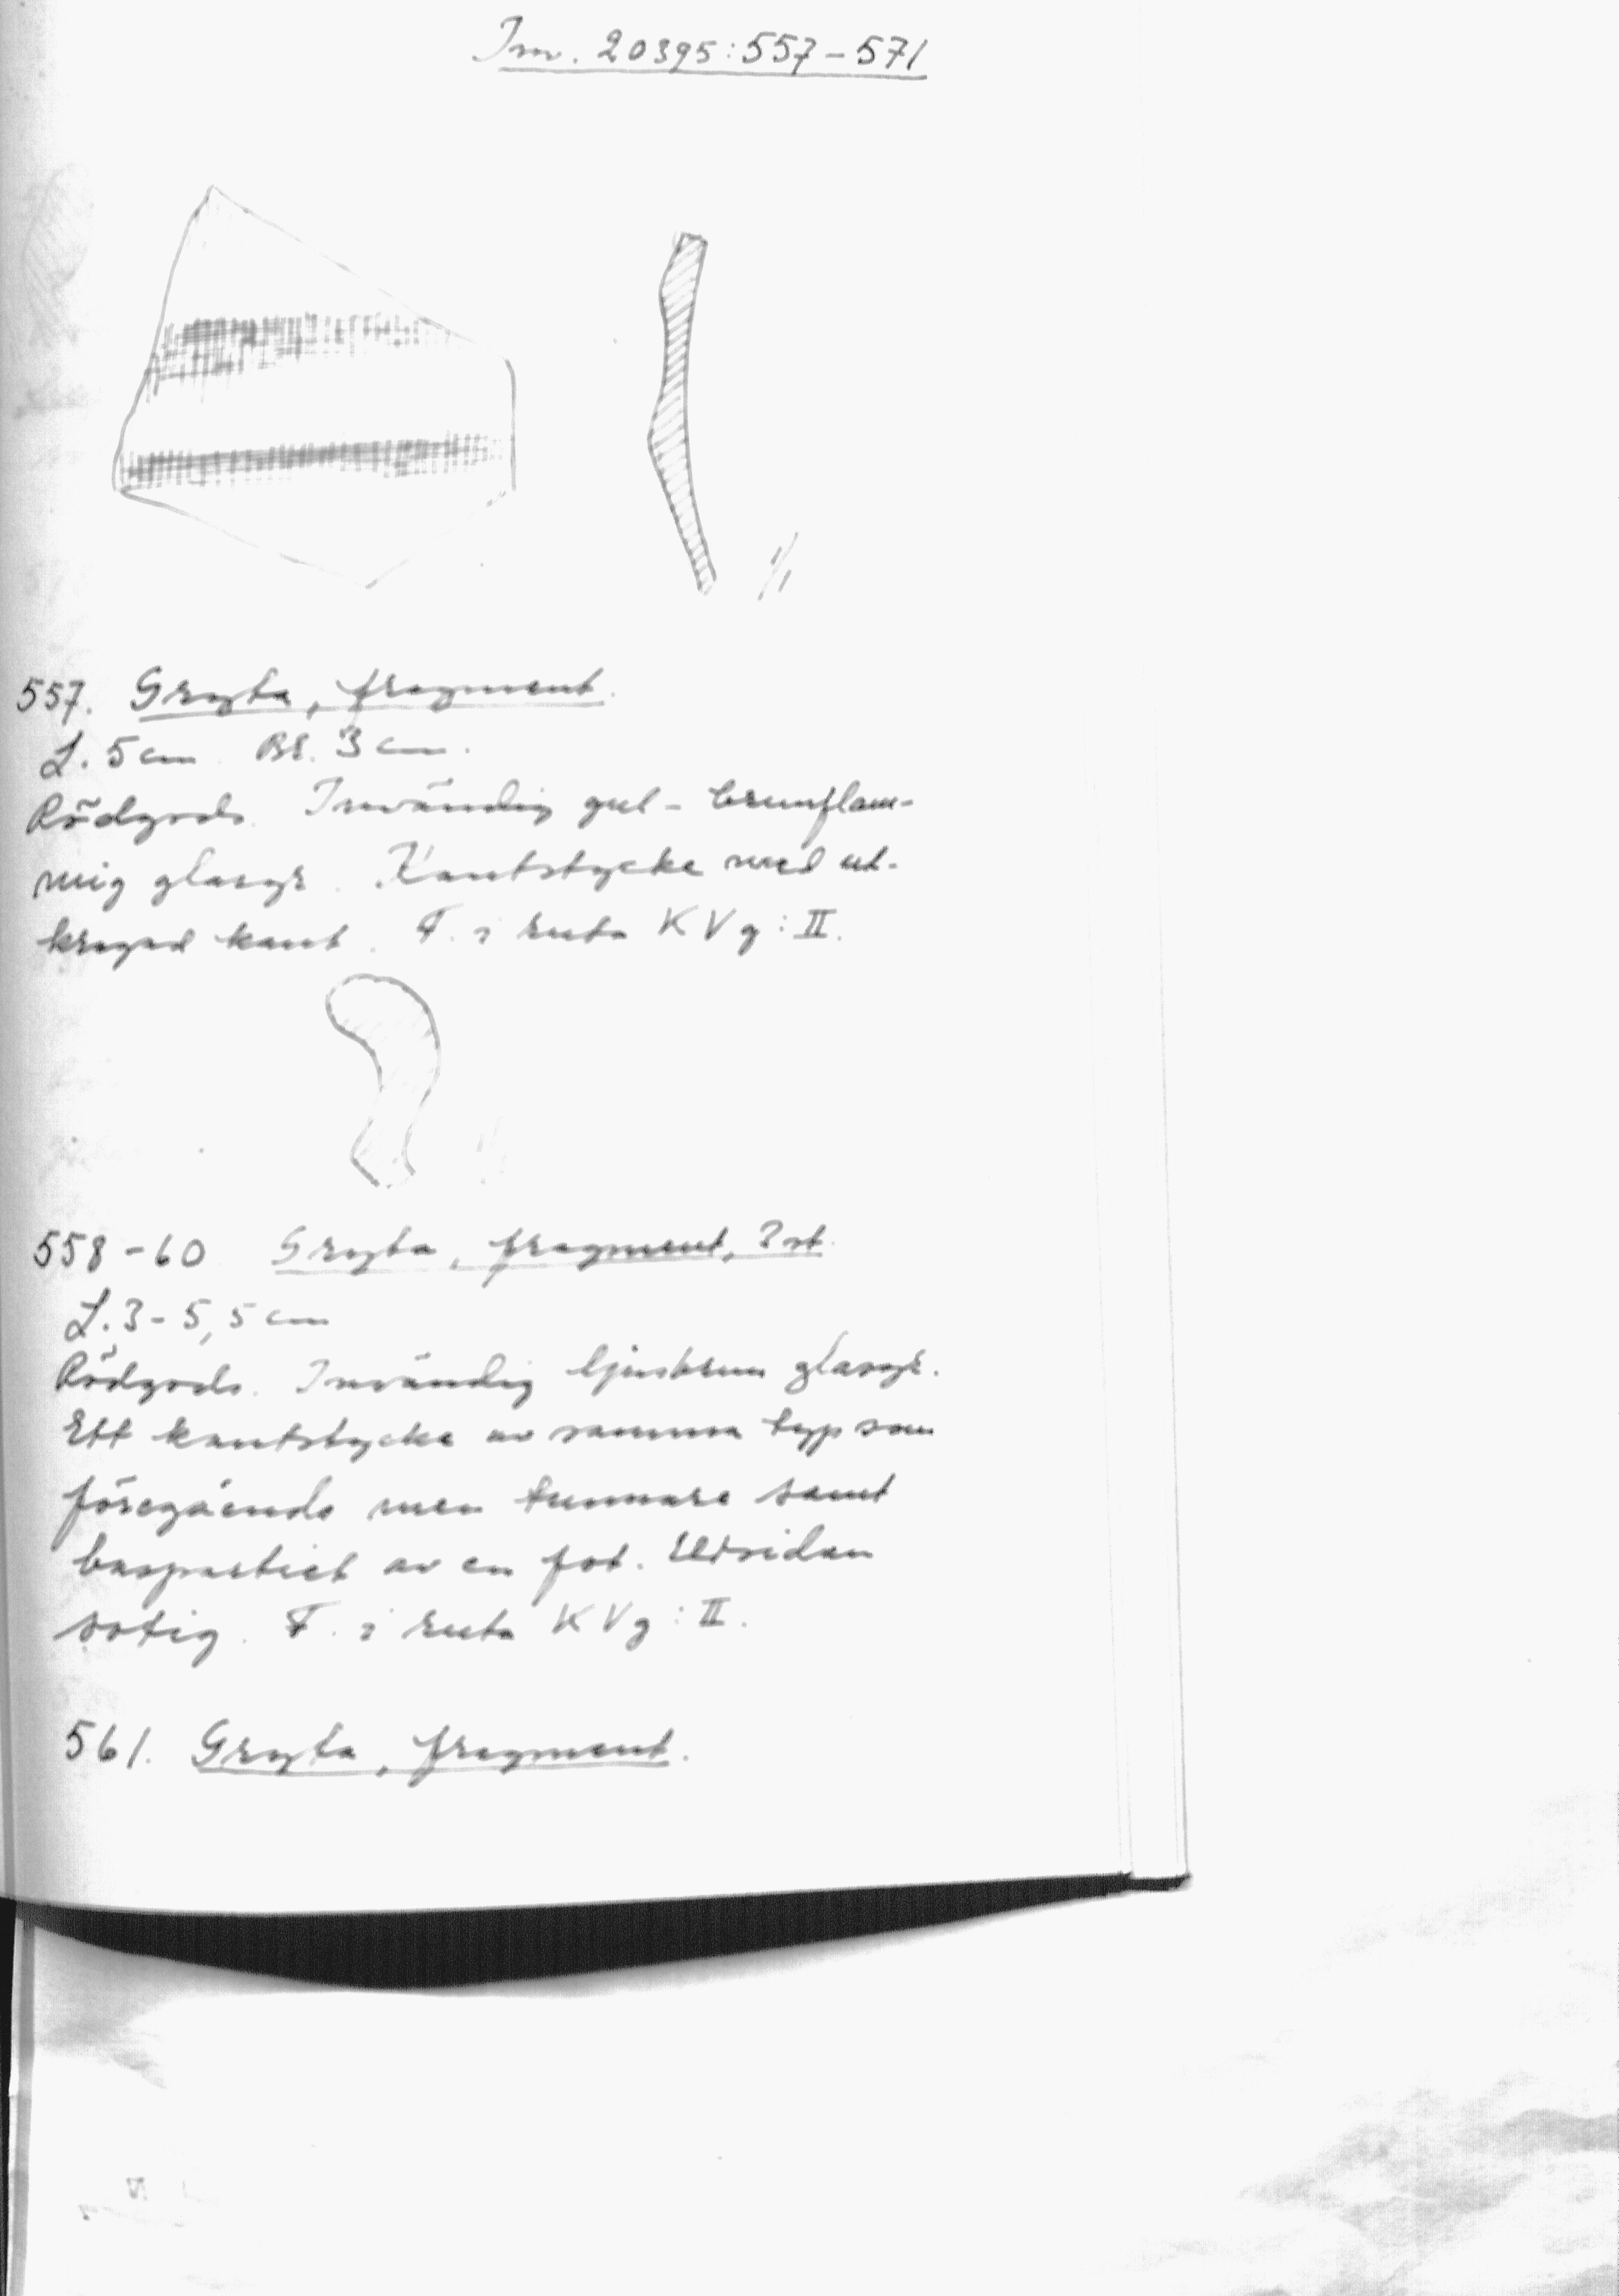 Inv. 20395:557-571
1/1
557. Gryta, fragment.
L. 5 cm. Br. 3 cm.
Rödgods. Invändig gul-brunflam-
mig glasyr. Kantstycke med ut-
kragad kant. F. i ruta KVg:II.
558-60 Gryta, fragment, 3 st.
L. 3-5,5 cm
Rödgods. Invändig ljusbrun glasyr.
Ett kantstycke av samma typ som
föregående men tunnare samt
baspartiet av en fot. Utsidan
sotig. F. i ruta KVg:II.
561. Gryta, fragment.